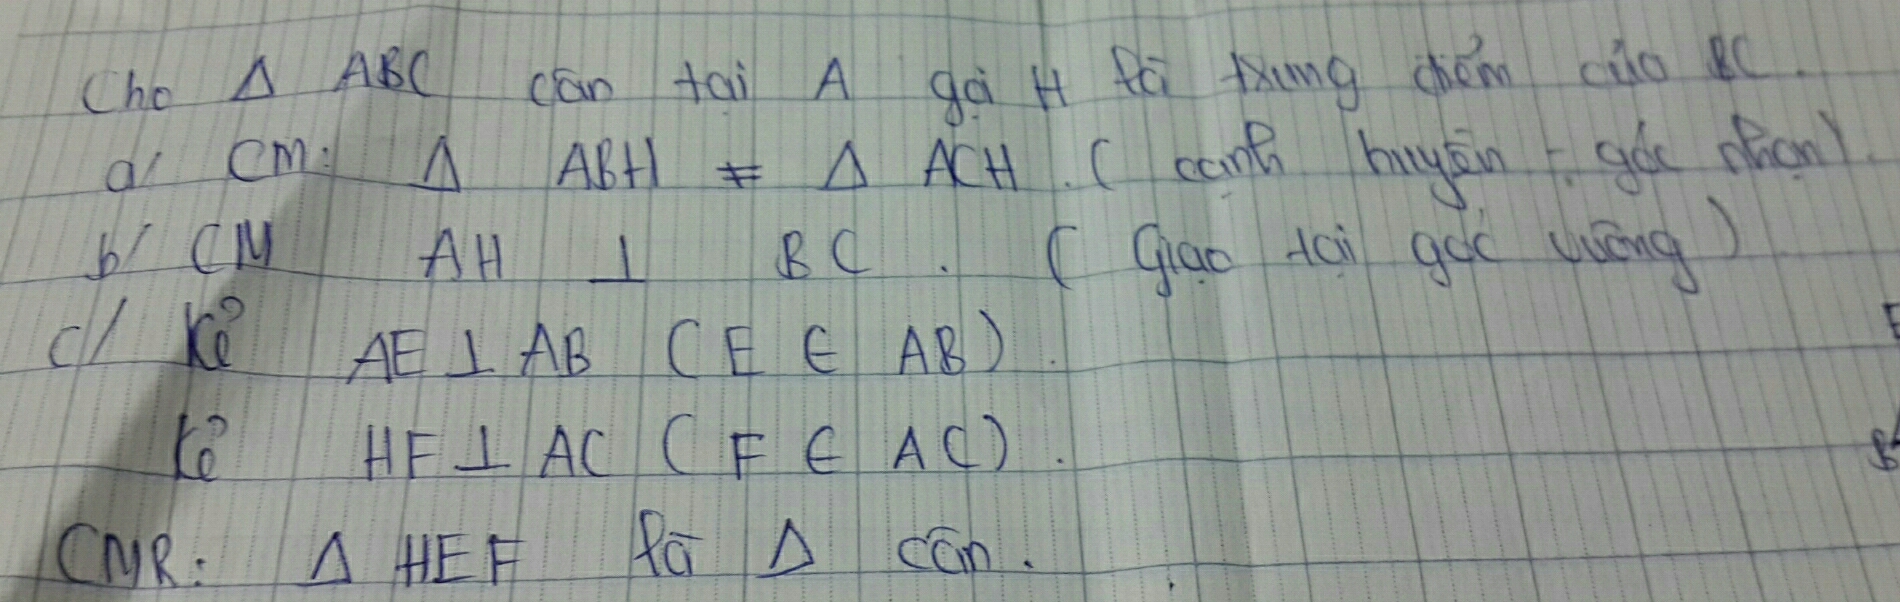 Cho Δ ABC cân tại A gọi H là trung điểm của BC.
a/ CM: Δ ABH = Δ ACH. ( cạnh huyền - góc nhọn)
b/ CM AH ⊥ BC. ( Giao tại góc vuông )
c/ Kẻ AE ⊥ AB ( E ∈ AB ).
Kẻ HF ⊥ AC ( F ∈ AC ).
CMR: Δ HEF là Δ cân.